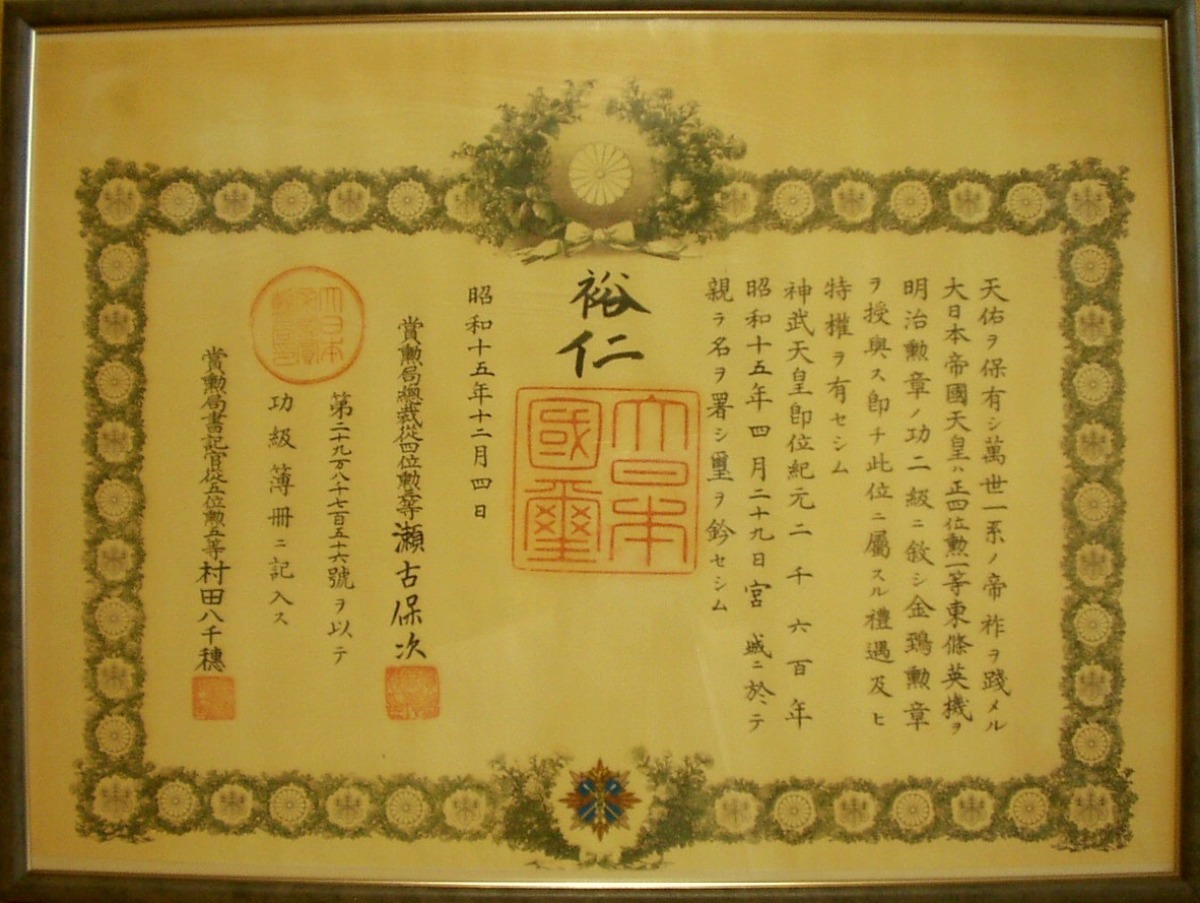 天佑ヲ保有シ萬世一系ノ帝祚ヲ踐メル
大日本帝國天皇ハ正四位勲一等東條英機ヲ
明治勲章ノ功二級ニ敘シ金鵄勲章
ヲ授與ス即チ此位ニ屬スル禮遇及ヒ
特權ヲ有セシム
神武天皇即位紀元二千六百年
昭和十五年四月二十九日宮城ニ於テ
親ラ名ヲ署シ璽ヲ鈐セシム
裕仁
大日本國璽
昭和十五年十二月四日
賞勲局總裁從四位勲三等瀬古保次
第二十九万八十七百五十六號ヲ以テ
功級簿冊ニ記入ス
賞勲局書記官從五位勲五等村田八千穗